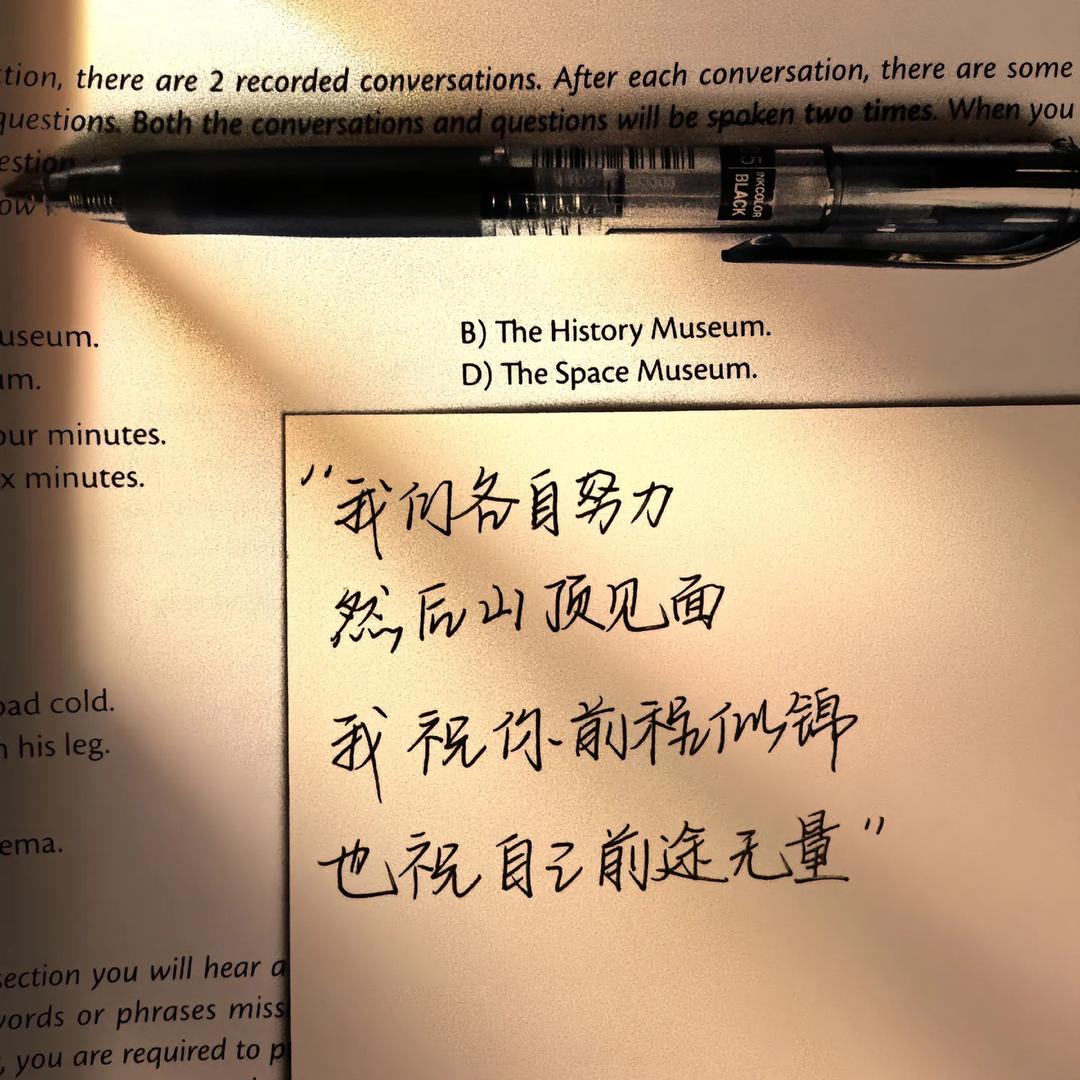 tion, there are 2 recorded conversations. After each conversation, there are some
questions. Both the conversations and questions will be spoken two times. When you
estion
ow
05 INKCOLOR BLACK
useum.
B) The History Museum.
um.
D) The Space Museum.
our minutes.
x minutes.
"我们各自努力
然后山顶见面
我祝你前程似锦
也祝自己前途无量"
bad cold.
n his leg.
ema.
section you will hear a
words or phrases miss
, you are required to p